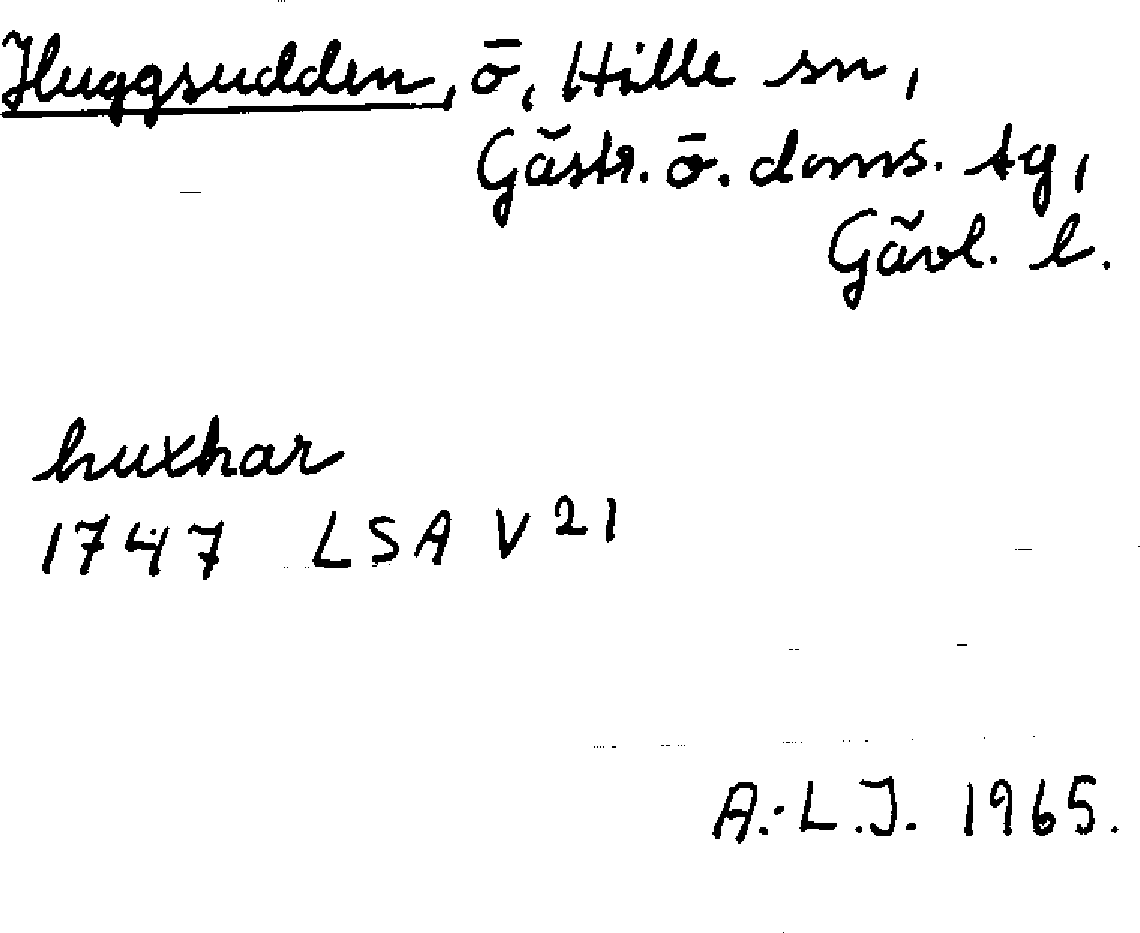 Huggsudden, ö, Hille sn,
Gästr. ö. doms. tg,
Gävl. l.
huxhar
1747 LSA V 21
A.-L.J. 1965.